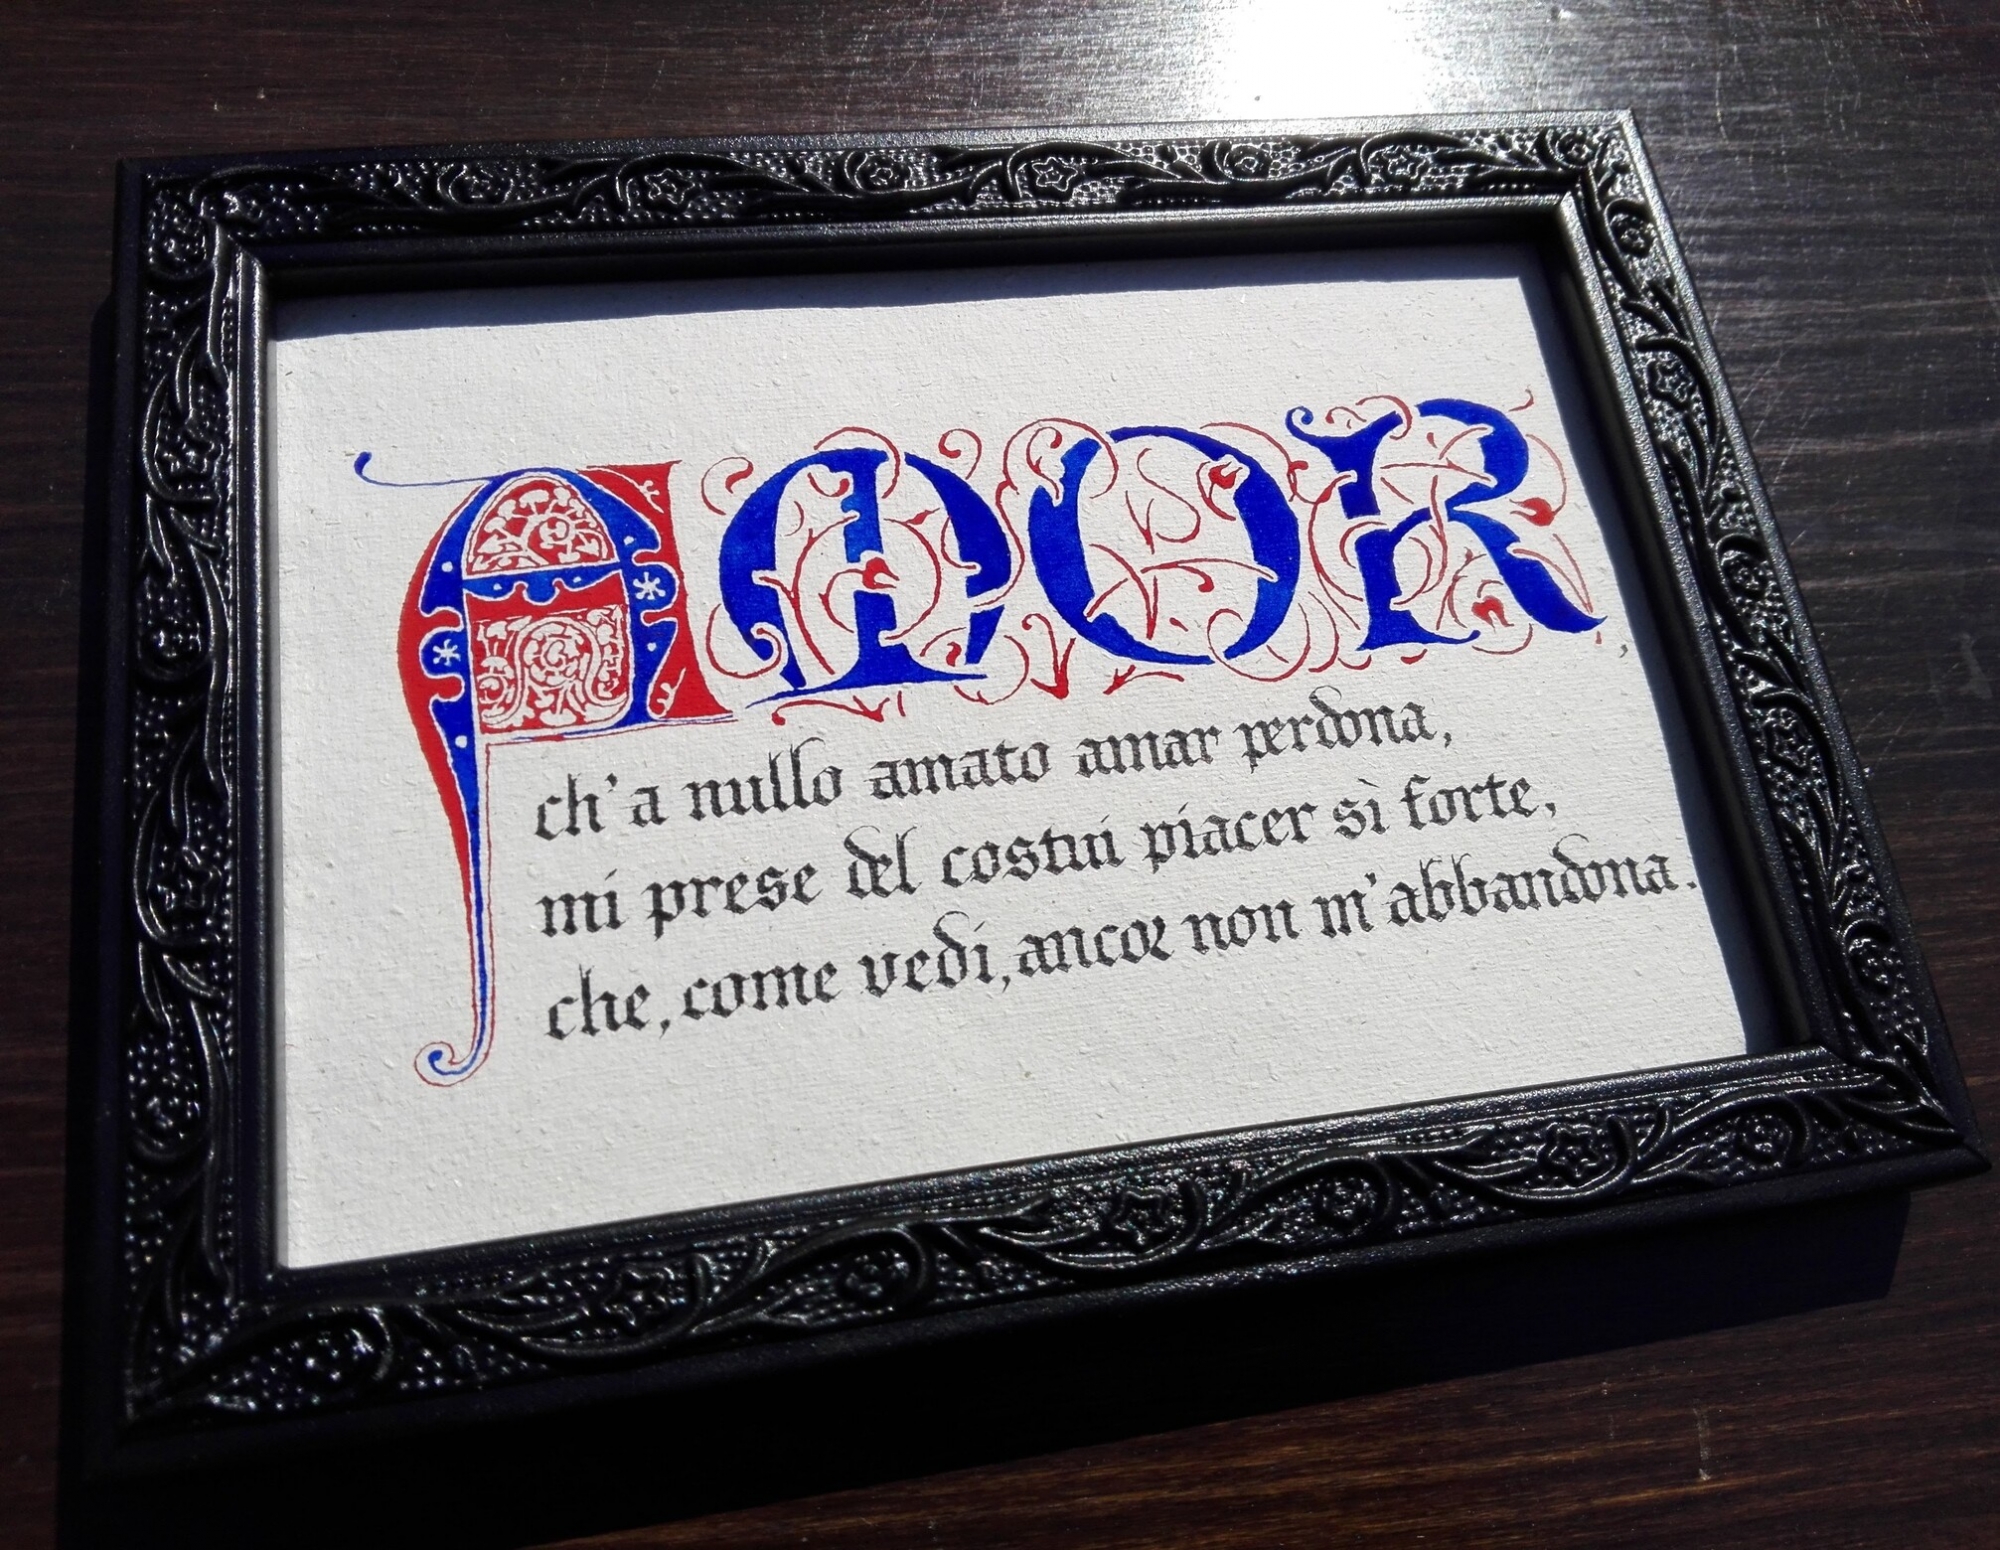 AMOR
ch'a nullo amato amar perdona,
mi prese del costui piacer sì forte,
che, come vedi, ancor non m'abbandona.